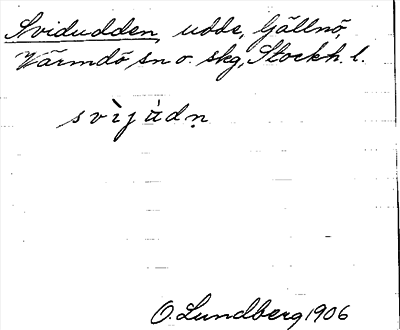 Svidudden, udde, Gällnö,
Värmdö sn o. skg, Stockh. l.
svìjàdṇ
O. Lundberg 1906